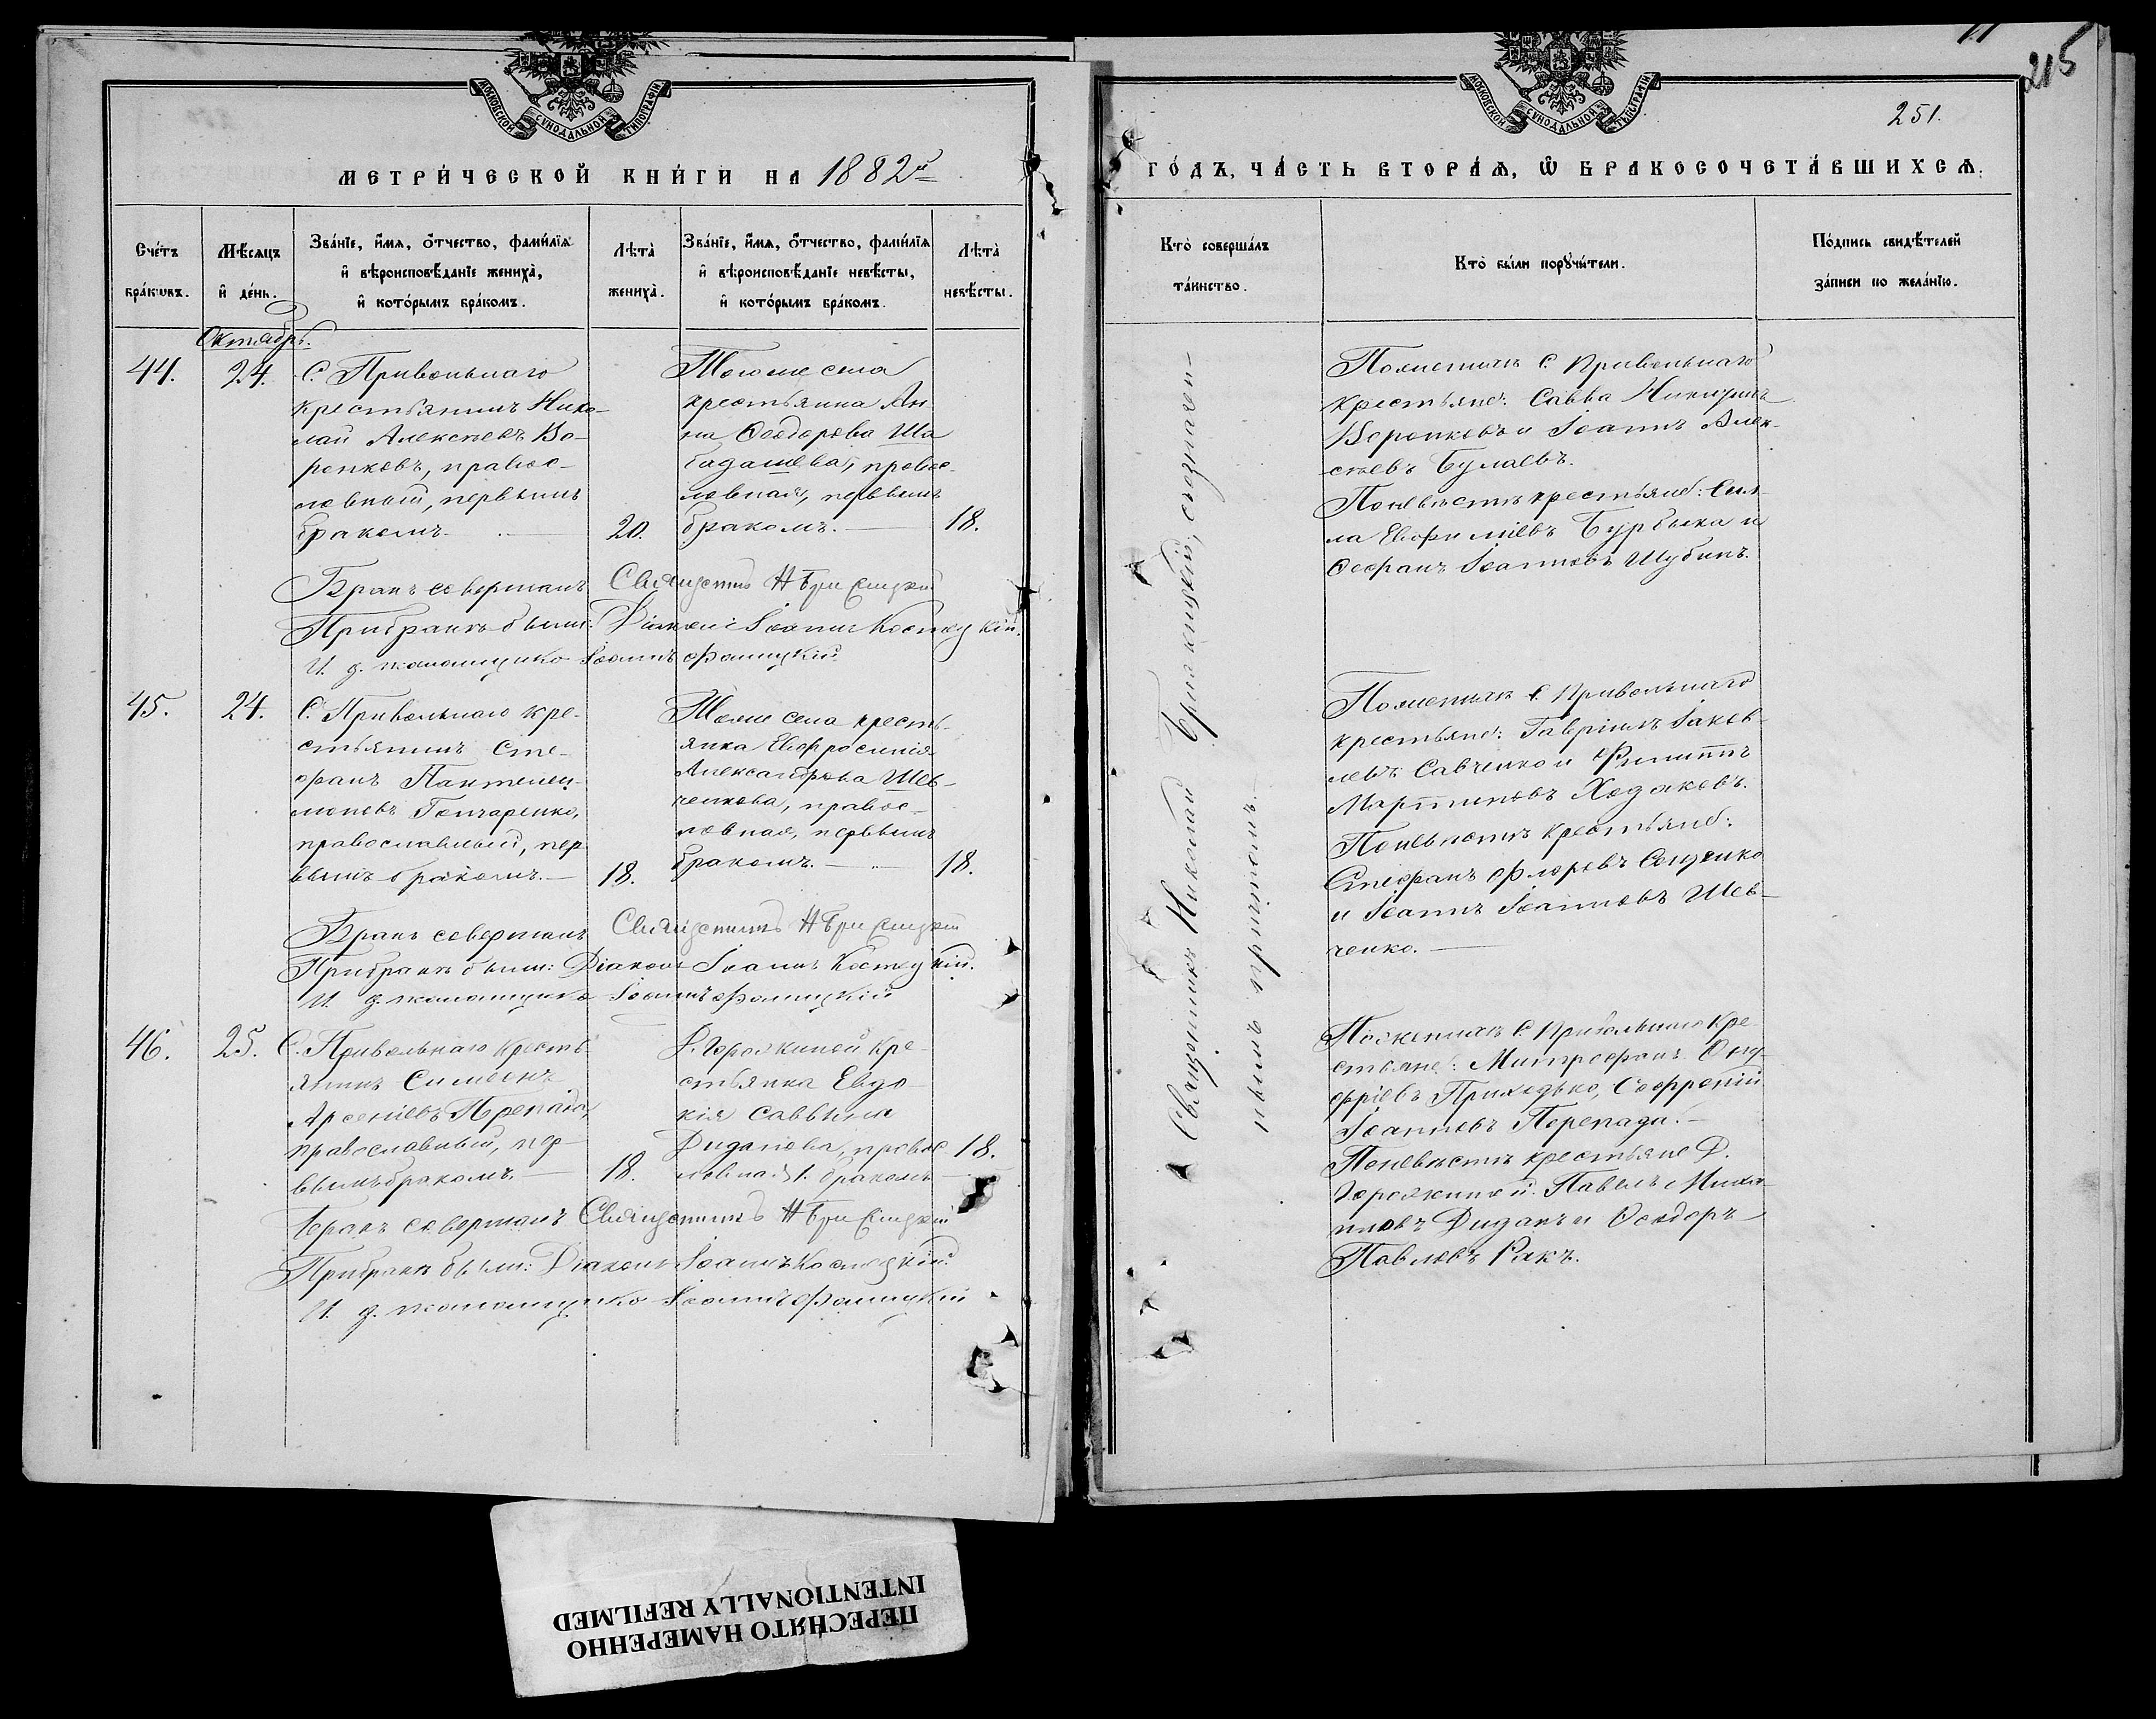 МОСКОВСКОЙ СѴНОДАЛЬНОЙ ТИПОГРАФІИ
МЕТРИ́ЧЕСКОЙ КНИ́ГИ НА 1882й
Сче́тъ бра́кѡвъ.
Мѣ́сяцъ и҆ де́нь.
Зва́нїе, и҆́мѧ, ѻ҆́тчество, фами́лїѧ
и҆ вѣроисповѣ́данїе жениха̀,
и҆ кото́рымъ бра́комъ.
Лѣ́та̀
жениха̀.
Зва́нїе, и҆́мѧ, ѻ҆́тчество, фами́лїѧ
и҆ вѣроисповѣ́данїе невѣ́сты,
и҆ кото́рымъ бра́комъ.
Лѣ́та̀
невѣ́сты.
Октябрь.
44.
24.
С. Привольнаго
крестьянинъ Нико-
лай Алексѣевъ Во-
ронковъ, правос-
лавный, первымъ
бракомъ.
20.
Тогоже села
крестьянка Ан-
на Ѳеодорова Ша
бадашева, правос-
лавная, первымъ
бракомъ.
18.
Бракъ совершалъ Священникъ Н Брилицкій
При бракѣ были: Діаконъ Іоаннъ Костецкій.
И. д. псаломщика Іоаннъ Фалицкій
45.
24.
С. Привольнаго кре-
стьянинъ Сте-
фанъ Пантелеи-
моновъ Гончаренко,
православный, пер
вымъ бракомъ.
18.
Тогоже села кресть-
янка Евфросинія
Александрова Шев-
ченкова, правос-
лавная, первымъ
бракомъ.
18.
Бракъ совершалъ Священникъ Н Брилицкій
При бракѣ были: Діаконъ Іоаннъ Костецкій.
И. д. псаломщика Іоаннъ Фалицкій
46.
25.
С. Привольнаго кресть
янинъ Симеонъ
Арсеніевъ
православный, пер-
вымъ бракомъ.
18.
Д. Горожиной кре-
стьянка Евдо-
кія Саввина
Диданова, правос
лавная 1. бракомъ
18.
Бракъ совершалъ Священникъ Н Брилицкій
При бракѣ были: Діаконъ Іоаннъ Костецкій.
И. д. псаломщика Іоаннъ Фалицкій
215
251.
МОСКОВСКОЙ СѴНОДАЛЬНОЙ ТИПОГРАФІИ
ГО́ДЪ, ЧА́СТЬ ВТОРА́Ѧ, Ѽ БРАКОСОЧЕТА́ВШИХСѦ.
Кто̀ соверша́лъ
та́инство.
Кто̀ бы́ли порꙋчи́тели.
По́дпись свидѣ́телей
за́писи по жела́нїю.
Священникъ Николай Брилицкій, съ
нымъ причтомъ.
По женихѣ С. Привольнаго
крестьяне: Савва Никитинъ
Воронковъ и Іоаннъ Алек-
сѣевъ Булаевъ.
По невѣстѣ крестьяне: Сил-
ла Евфиміевъ Бурбыка и
Ѳеофанъ Іоанновъ Шубинъ.
По женихѣ С. Привольнаго
крестьяне: Гавріилъ Іаков-
левъ Савченко и Филиппъ
Мартиновъ Ходаковъ.
По невѣстѣ крестьяне:
Стефанъ Флоровъ Сощенко
и Іоаннъ Іоанновъ Шев-
ченко.
По женихѣ С. Привольнаго Кре
стьяне: Митрофанъ Ону-
фріевъ Приходько, Софроній
Іоанновъ Перепади.
По невѣстѣ крестьяне Д.
Горожиной: Павелъ Миха-
Диданъ и Ѳеодоръ
Павловъ Ракъ.
ПЕРЕСНЯТО НАМЕРЕННО
INTENTIONALLY REFILMED